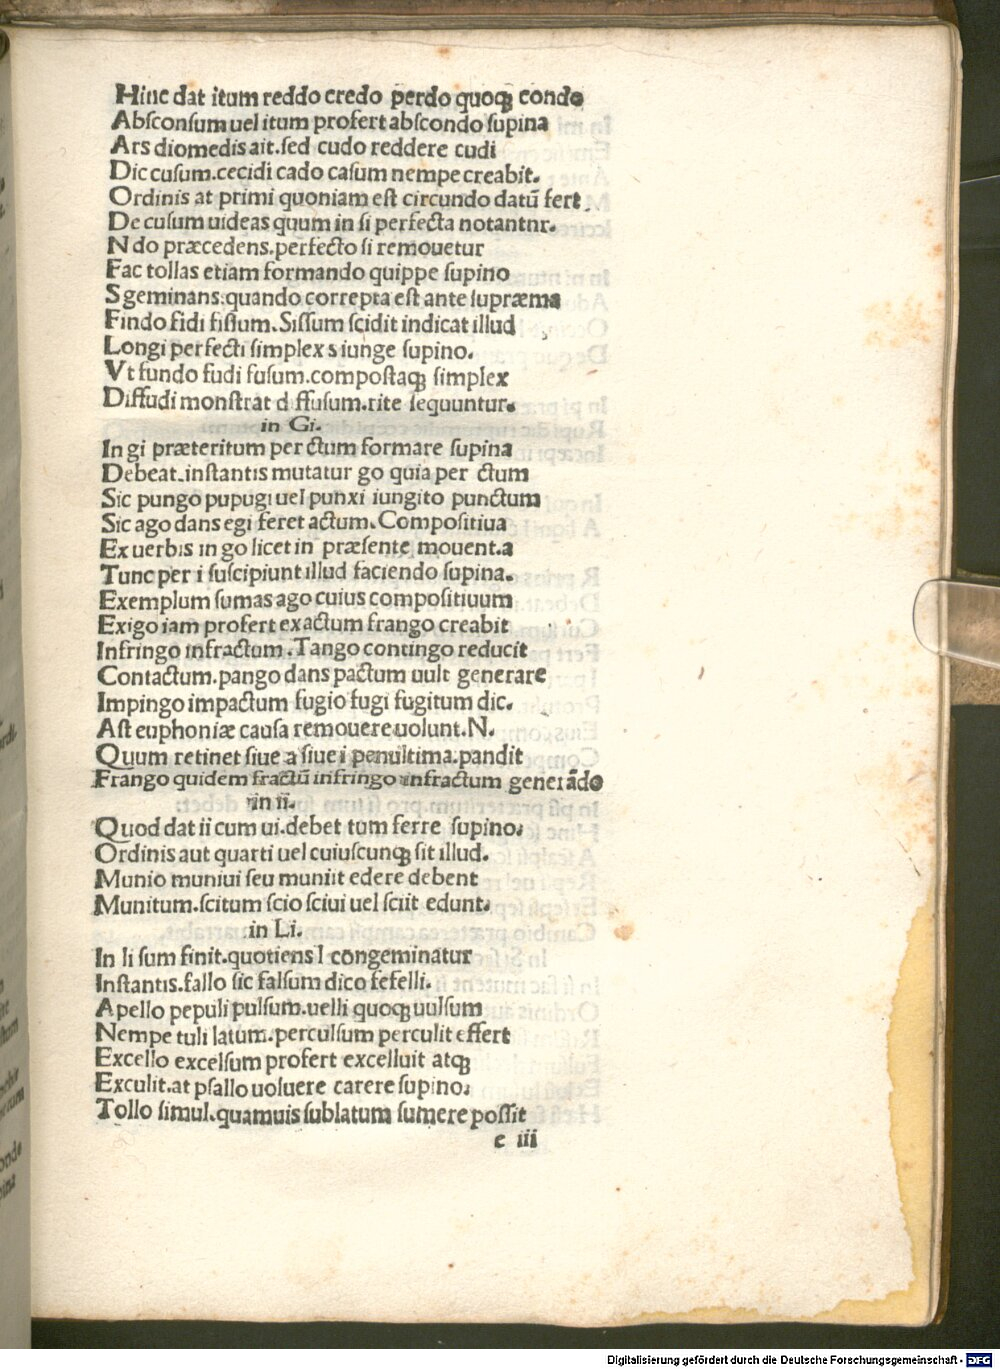 Hinc dat itum reddo credo perdo quoqꝫ condo
Absconsum uel itum profert abscondo supina
Ars diomedis ait.sed cudo reddere cudi
Dic cusum.cecidi cado casum nempe creabit.
Ordinis at primi quoniam est circundo datū fert.
De cusum uideas quum in si perfecta notantnr.
N do præcedens.perfecto si remouetur
Fac tollas etiam formando quippe supino
S geminans.quando correpta est ante supræma
Findo fidi fissum.Sissum scidit indicat illud
Longi perfecti simplex s iunge supino.
Vt fundo fudi fusum.compostaqꝫ simplex
Diffudi monstrat d ffusum.rite sequuntur.
in Gi.
In gi præteritum per ctum formare supina
Debeat.instantis mutatur go quia per ctum
Sic pungo pupugi uel punxi iungito punctum
Sic ago dans egi feret actum.Compositiua
Ex uerbis in go licet in præsente mouent.a
Tunc per i suscipiunt illud faciendo supina.
Exemplum sumas ago cuius compositiuum
Exigo iam profert exactum frango creabit
Infringo infractum.Tango contingo reducit
Contactum.pango dans pactum uult generare
Impingo impactum fugio fugi fugitum dic.
Ast euphoniæ causa remouere uolunt.N.
Quum retinet siue a siue i penultima.pandit
Frango quidem fractū infringo infractum generādo
in ii.
Quod dat ii cum ui.debet tum ferre supino.
Ordinis aut quarti uel cuiuscunqꝫ sit illud.
Munio muniui seu muniit edere debent
Munitum.scitum scio sciui uel sciit edunt.
in Li.
In li sum finit.quotiens l congeminatur
Instantis.fallo sic falsum dico fefelli.
Apello pepuli pulsum.uelli quoqꝫ uulsum
Nempe tuli latum.perculsum perculit effert
Excello excelsum profert excelluit atqꝫ
Exculit.at psallo uoluere carere supino.
Tollo simul.quamuis sublatum sumere possit
e iii
Digitalisierung gefördert durch die Deutsche Forschungsgemeinschaft - DFG